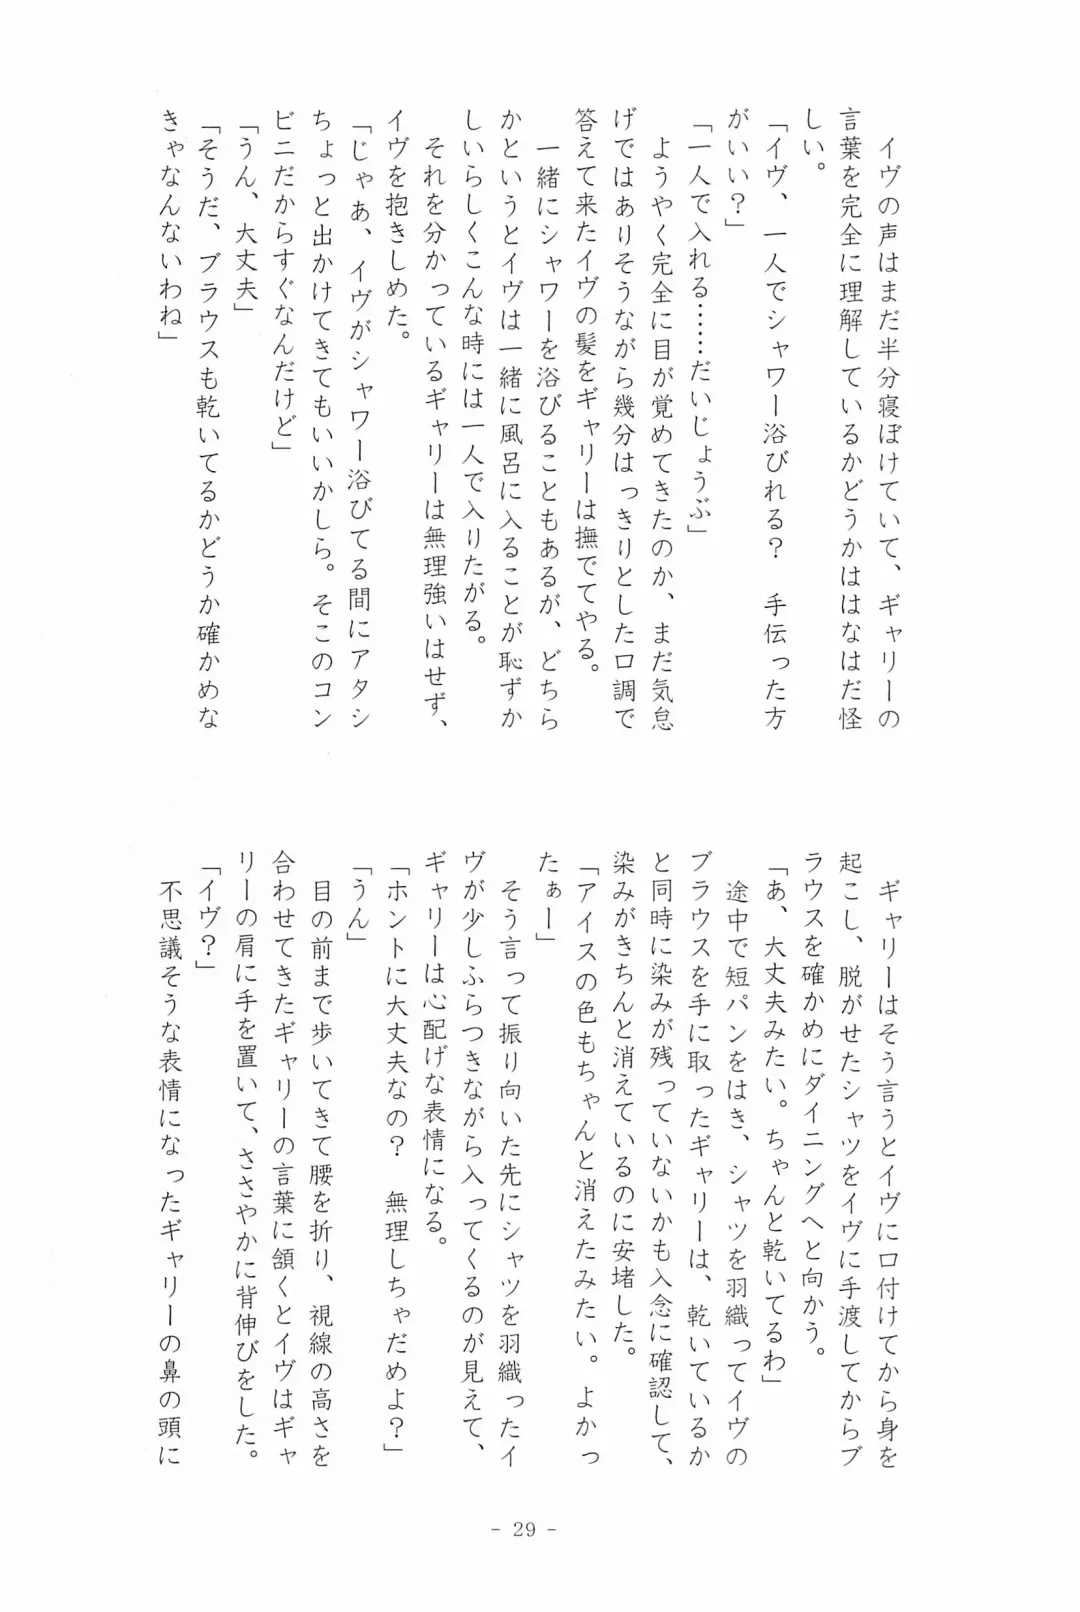 イヴの声はまだ半分寝ぼけていて、ギャリーの
言葉を完全に理解しているかどうかははなはだ怪
しい。
「イヴ、一人でシャワー浴びれる？　手伝った方
がいい？」
「一人で入れる……だいじょうぶ」
ようやく完全に目が覚めてきたのか、まだ気怠
げではありそうながら幾分はっきりとした口調で
答えて来たイヴの髪をギャリーは撫でてやる。
一緒にシャワーを浴びることもあるが、どちら
かというとイヴは一緒に風呂に入ることが恥ずか
しいらしくこんな時には一人で入りたがる。
それを分かっているギャリーは無理強いはせず、
イヴを抱きしめた。
「じゃあ、イヴがシャワー浴びてる間にアタシ
ちょっと出かけてきてもいいかしら。そこのコン
ビニだからすぐなんだけど」
「うん、大丈夫」
「そうだ、ブラウスも乾いてるかどうか確かめな
きゃなんないわね」
ギャリーはそう言うとイヴに口付けてから身を
起こし、脱がせたシャツをイヴに手渡してからブ
ラウスを確かめにダイニングへと向かう。
「あ、大丈夫みたい。ちゃんと乾いてるわ」
途中で短パンをはき、シャツを羽織ってイヴの
ブラウスを手に取ったギャリーは、乾いているか
と同時に染みが残っていないかも入念に確認して、
染みがきちんと消えているのに安堵した。
「アイスの色もちゃんと消えたみたい。よかっ
たぁー」
そう言って振り向いた先にシャツを羽織ったイ
ヴが少しふらつきながら入ってくるのが見えて、
ギャリーは心配げな表情になる。
「ホントに大丈夫なの？　無理しちゃだめよ？」
「うん」
目の前まで歩いてきて腰を折り、視線の高さを
合わせてきたギャリーの言葉に頷くとイヴはギャ
リーの肩に手を置いて、ささやかに背伸びをした。
「イヴ？」
不思議そうな表情になったギャリーの鼻の頭に
- 29 -